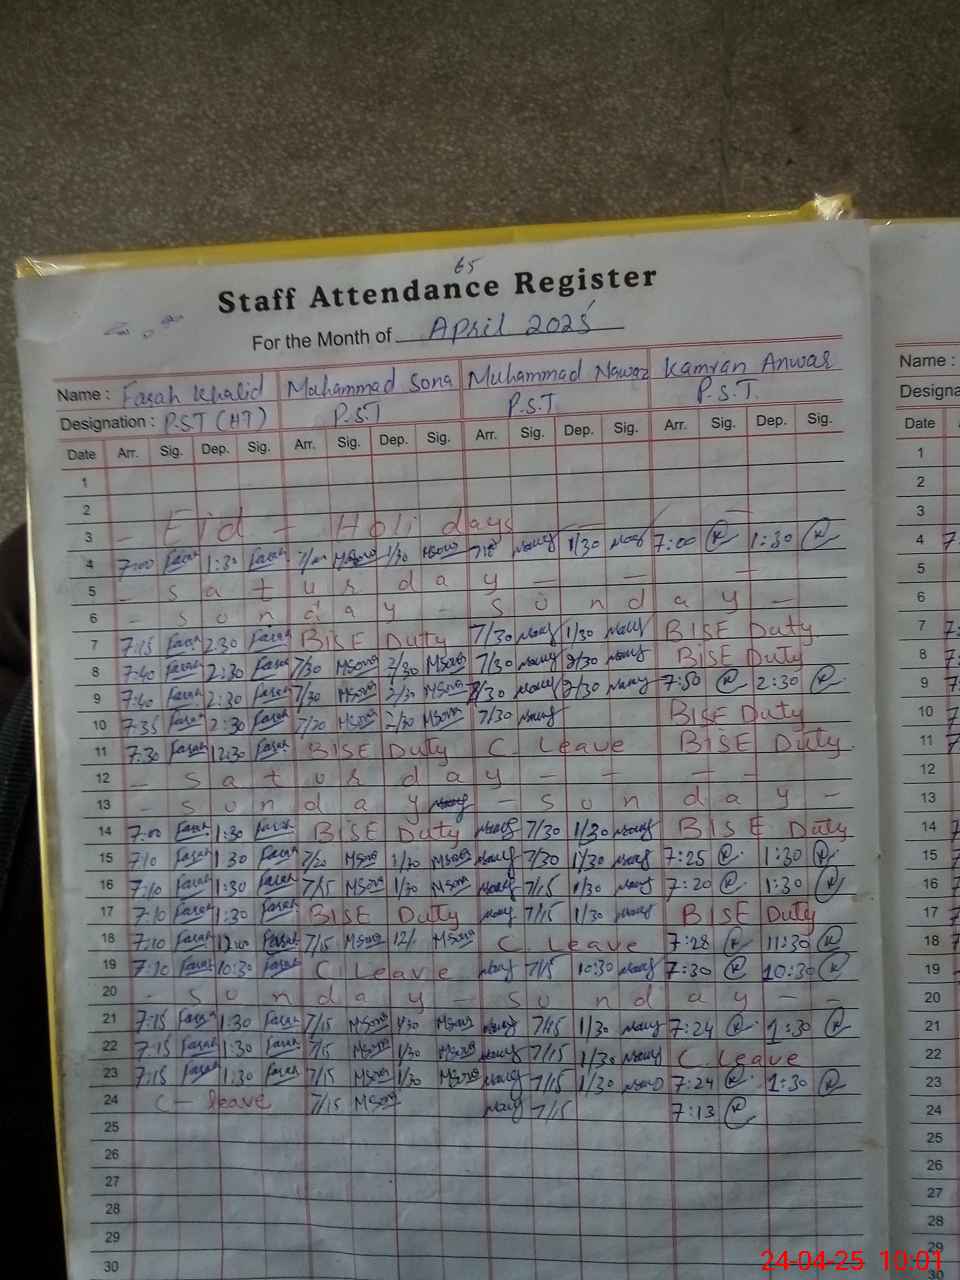 65
Staff Attendance Register
For the Month of April 2025
Name : Farah Khalid Muhammad Sona Muhammad Nawaz Kamran Anwar
Designation : P.ST (HT) P.S.T P.S.T. P.S.T.
Date Arr. Sig. Dep. Sig. Arr. Sig. Dep. Sig. Arr. Sig. Dep. Sig. Arr. Sig. Dep. Sig.
1
2
3 - Eid - Holi days - -
4 7:00 Farah 1:30 Farah MSona 1/30 MSona Nawaz 1/30 Nawaz 7:00 K 1:30 K
5 - Saturday - - -
6 - Sonday - Sunday -
7 7:15 Farah 2:30 Farah BISE Duty 7/30 Nawaz 1/30 Nawaz BISE Duty
8 7:40 Farah 2:30 Farah 7/30 MSona 2/30 MSona 7/30 Nawaz 2/30 Nawaz BISE Duty
9 7:40 Farah 2:30 Farah 7/30 MSona 2/30 MSona 7/30 Nawaz 2/30 Nawaz 7:50 K 2:30 K
10 7:35 Farah 2:30 Farah 7/20 MSona 2/30 MSona 7/30 Nawaz BISE Duty
11 7:30 Farah 12:30 Farah BISE Duty C. Leave BISE Duty
12 - Saturday - - - -
13 - Sunday - Sunday -
14 7:00 Farah 1:30 Farah BISE Duty Nawaz 7/30 1/30 Nawaz BISE Duty
15 7:10 Farah 1:30 Farah 7/20 MSona 1/30 MSona Nawaz 7/30 1/30 Nawaz 7:25 K 1:30 K
16 7:10 Farah 1:30 Farah 7/15 MSona 1/30 MSona Nawaz 7/15 1/30 Nawaz 7:20 K 1:30 K
17 7:10 Farah 1:30 Farah BISE Duty Nawaz 7/15 1/30 Nawaz BISE Duty
18 7:10 Farah Farah 7/15 MSona MSona C. Leave 7:28 K 11:30 K
19 7:10 Farah 10:30 Farah C. Leave Nawaz 7/15 10:30 Nawaz 7:30 K 10:30 K
20 - Sunday - Sunday - -
21 7:15 Farah 1:30 Farah 7/15 MSona 1/30 MSona Nawaz 7/15 1/30 Nawaz 7:24 K 1:30 K
22 7:15 Farah 1:30 Farah 7/15 MSona 1/30 MSona Nawaz 7/15 1/30 Nawaz C. Leave
23 7:15 Farah 1:30 Farah 7/15 MSona 1/30 MSona Nawaz 7/15 1/30 Nawaz 7:24 K 1:30 K
24 C - leave 7/15 MSona Nawaz 7/15 7:13 K
25
26
27
28
29
30
Name :
Designa
Date
1
2
3
4
5
6
7
8
9
10
11
12
13
14
15
16
17
18
19
20
21
22
23
24
25
26
27
28
29
30
24-04-25 10:01